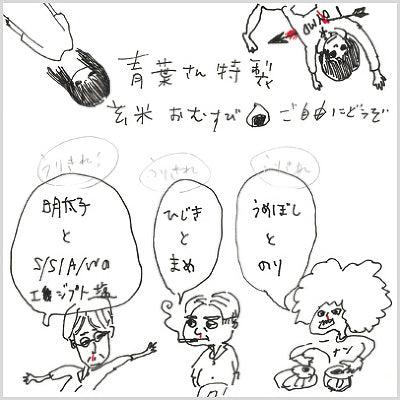 青葉さん特製
玄米おむすび ご自由にどうぞ
うりきれ!
明太子
と
S/S/A/W
エジプト塩
うりきれ
ひじき
と
まめ
うりきれ
うめぼし
と
のり
ナン